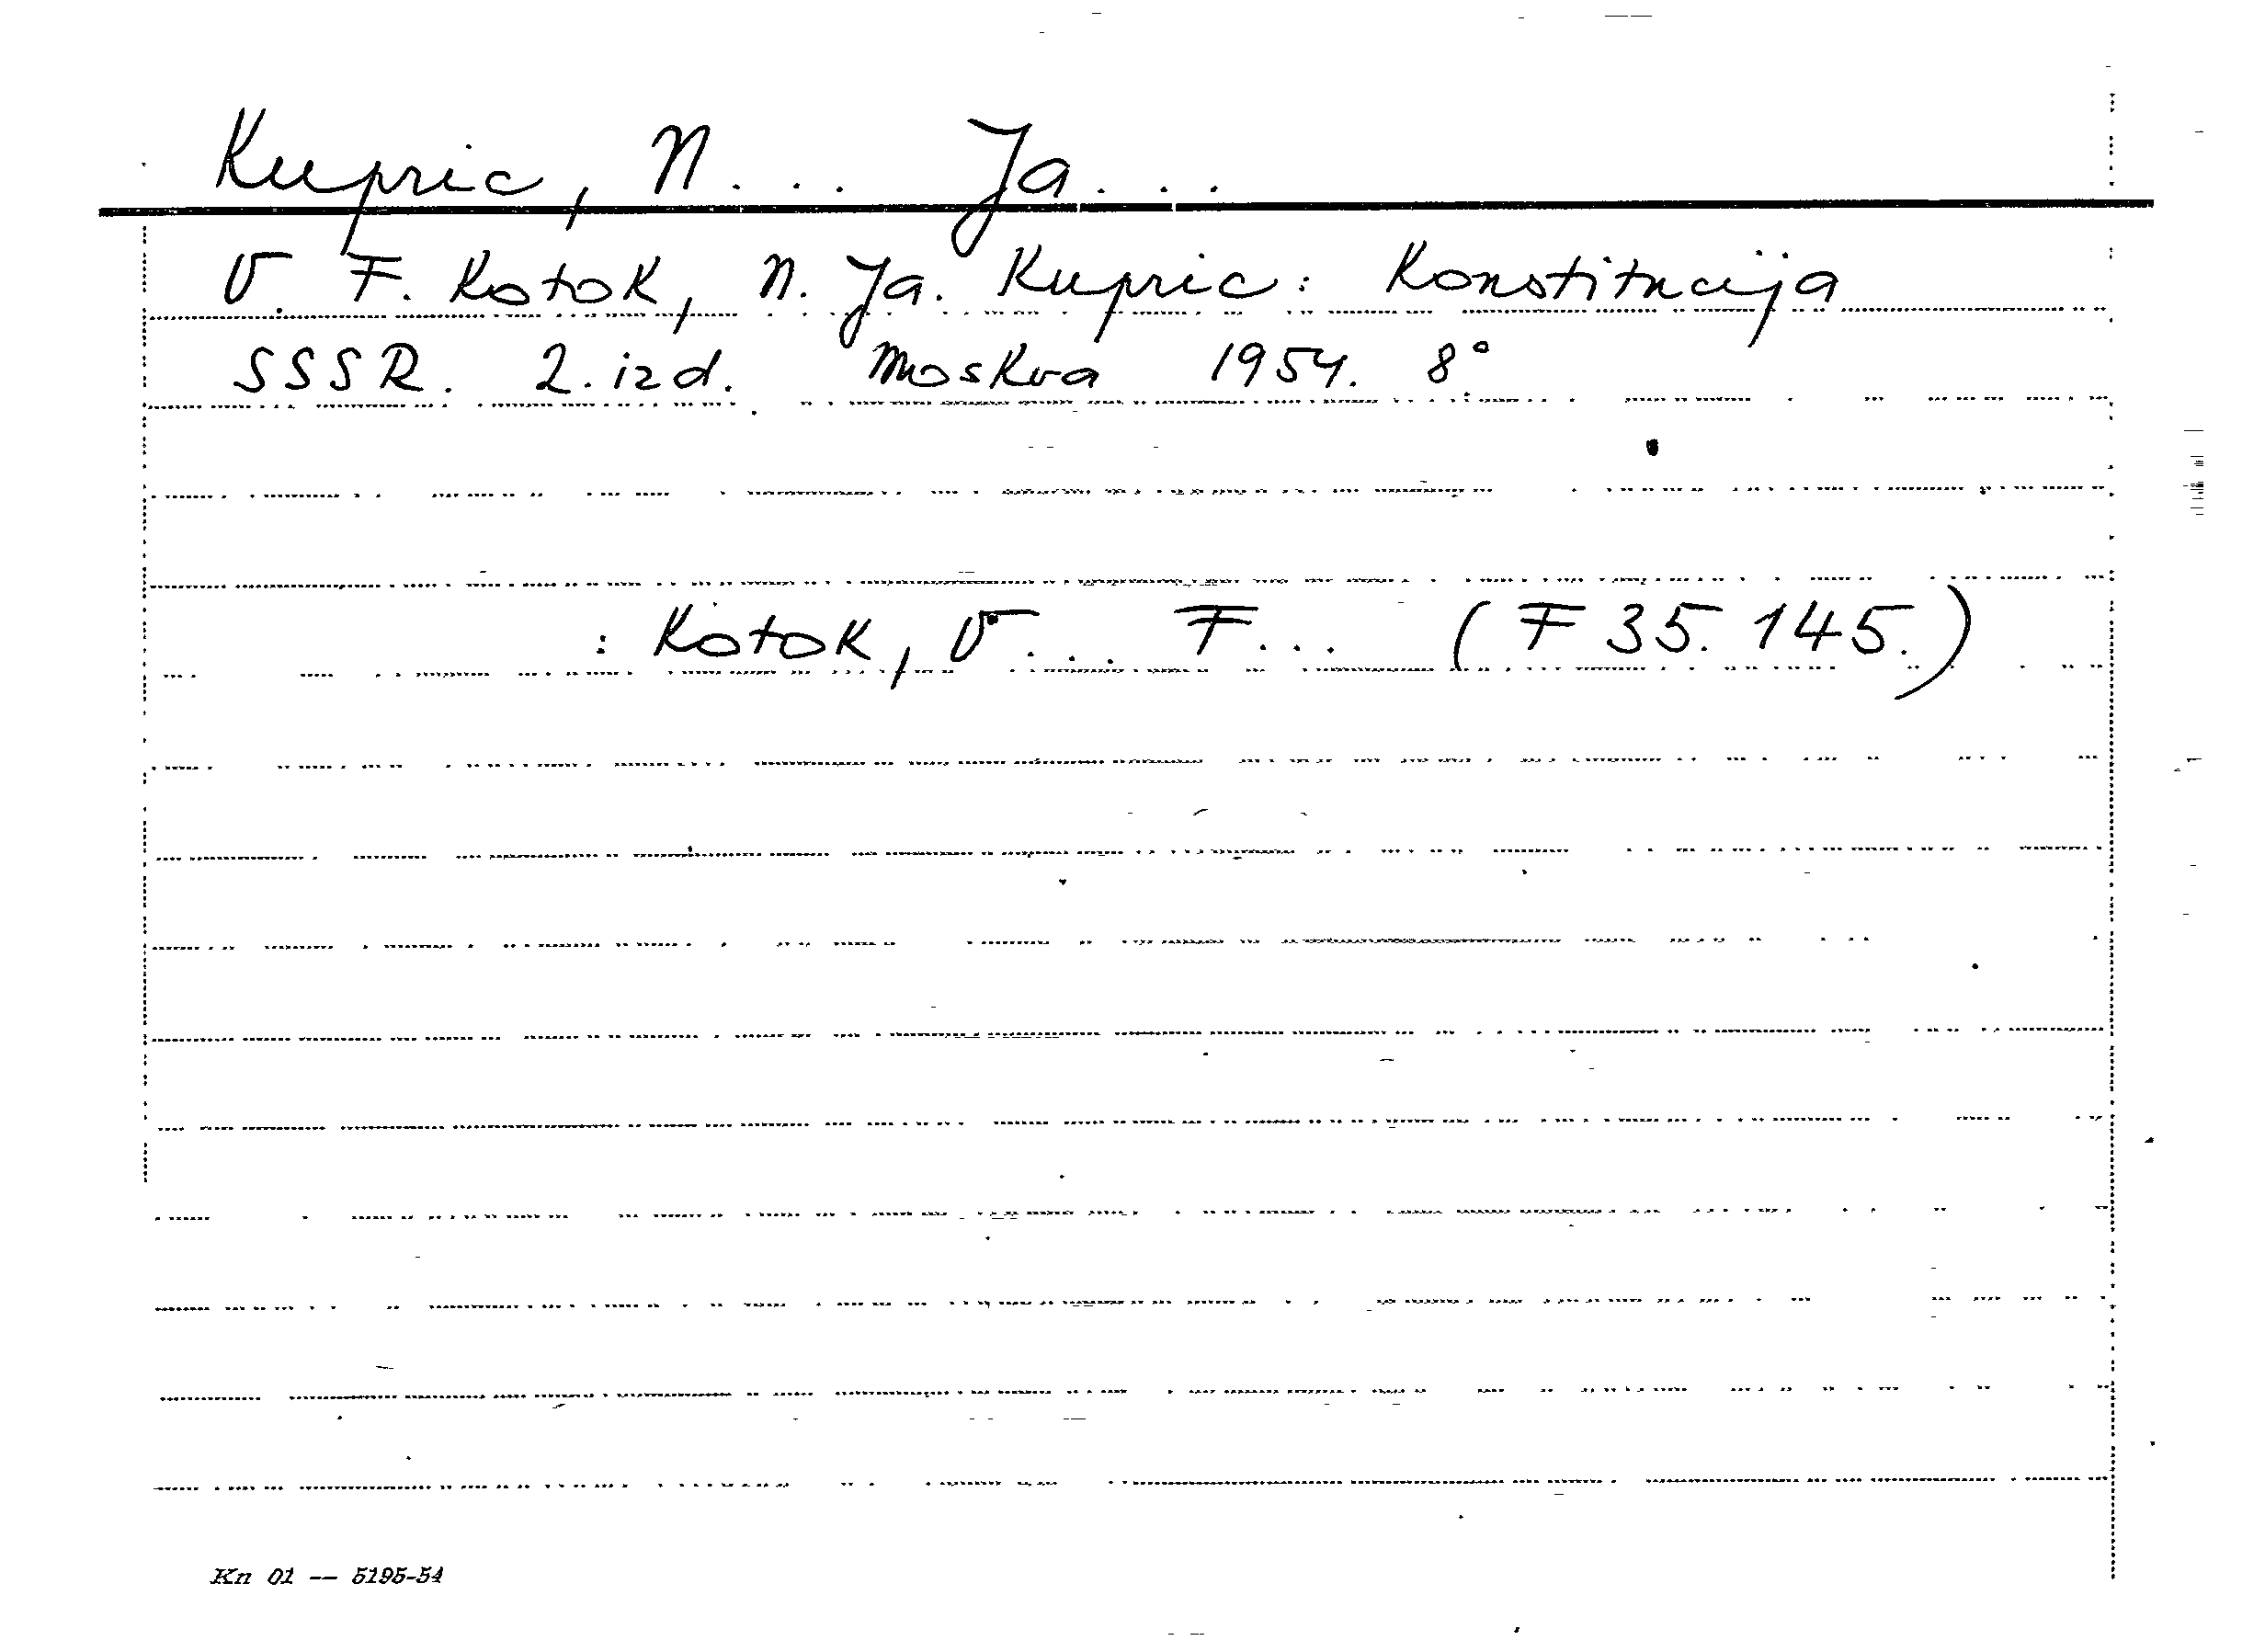 Kupric, N... Ja...
V. F. Kotok, N. Ja. Kupric: Konstitucija
SSSR. 2. izd. Moskva 1954. 8°
: Kotok, V... F... (F 35.145.)
Kn 01 -- 5195-54